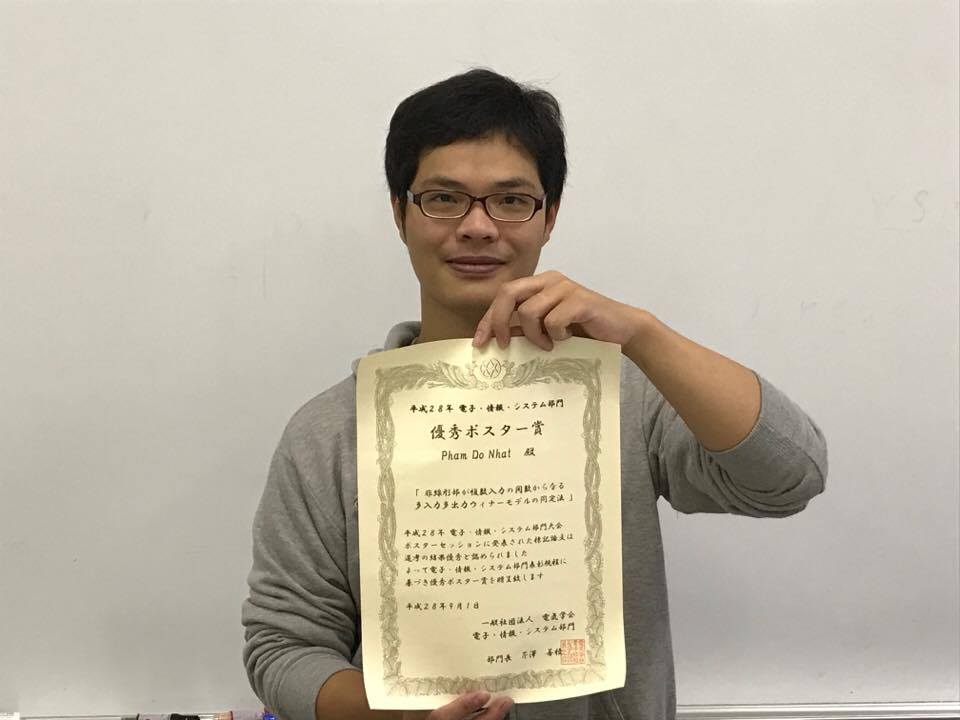 平成28年 電子・情報・システム部門
優秀ポスター賞
Pham Do Nhat 殿
「 非線形部が複数入力の関数からなる
多入力多出力ウィナーモデルの同定法 」
平成28年 電子・情報・システム部門大会
ポスターセッションに発表された標記論文は
選考の結果優秀と認められました
よって電子・情報・システム部門表彰規程に
基づき優秀ポスター賞を贈呈致します
平成28年9月1日
一般社団法人 電気学会
電子・情報・システム部門
部門長 芹澤 善積